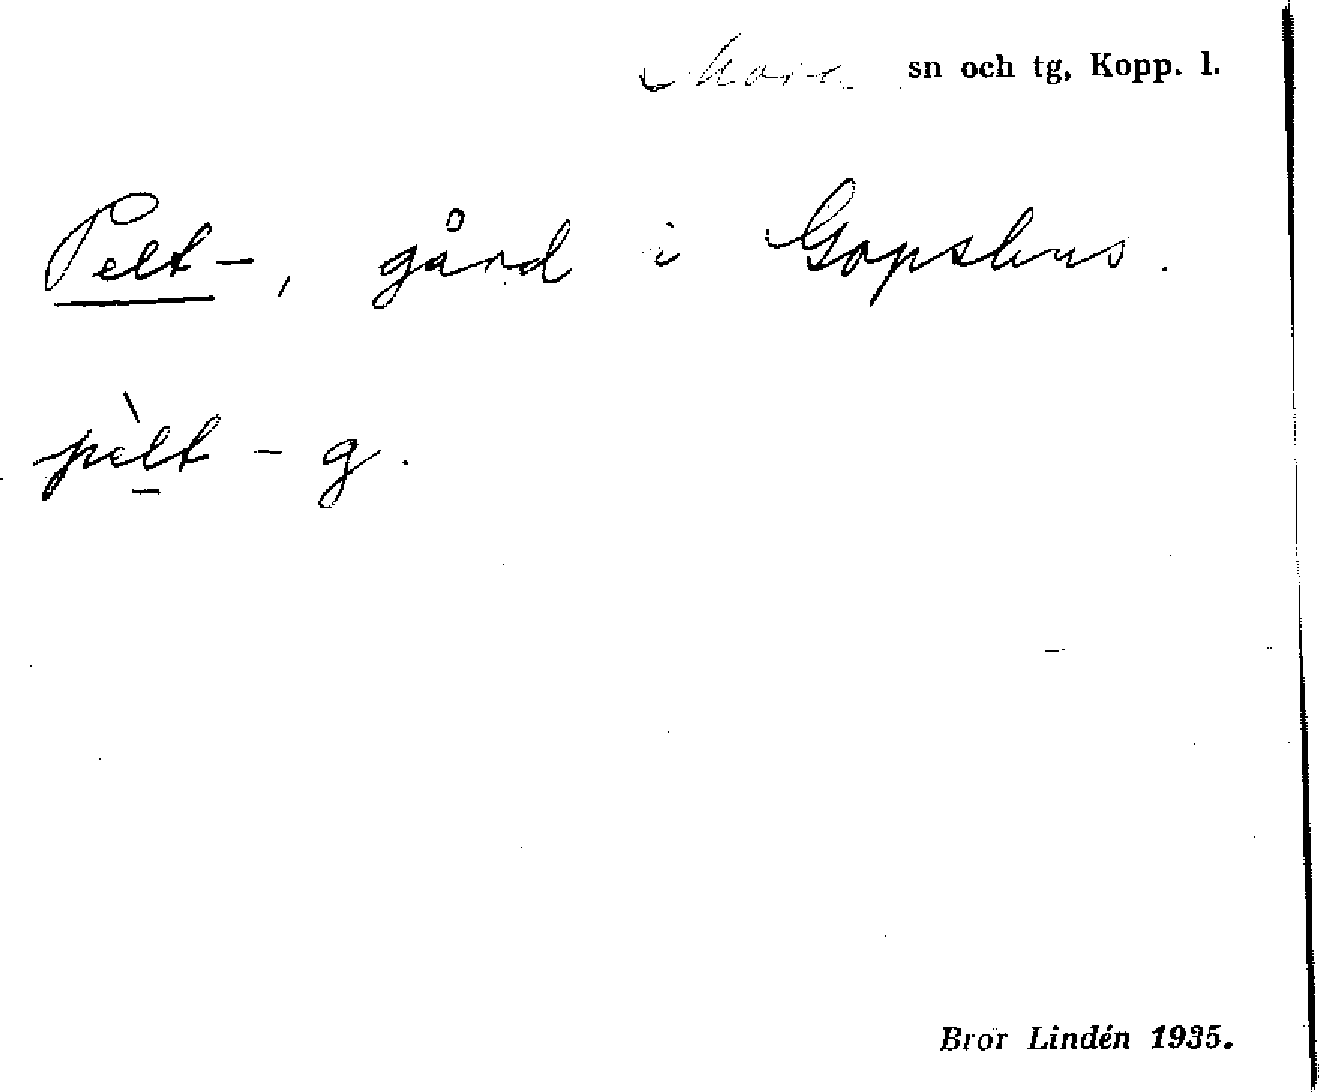 Mora sn och tg, Kopp. l.
Pelt-, gård i Gopshus.
pèlt - g.
Bror Lindén 1935.